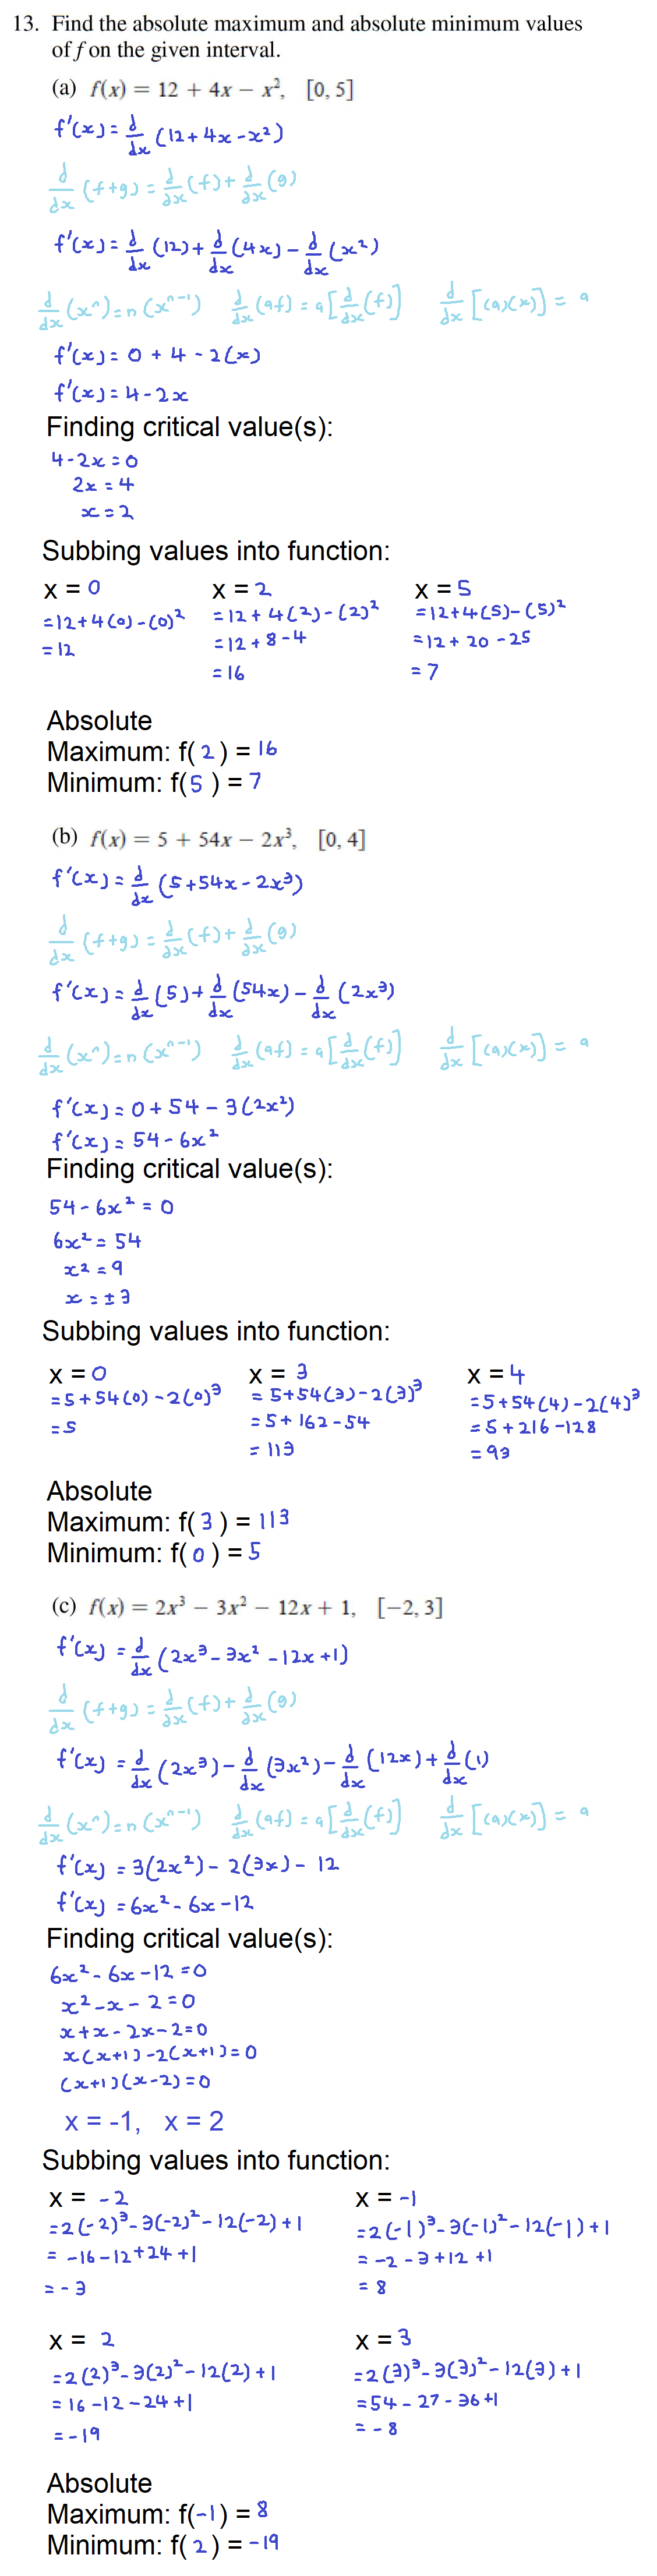 13. Find the absolute maximum and absolute minimum values
of f on the given interval.
(a) f(x) = 12 + 4x − x², [0, 5]
f'(x) = d/dx (12 + 4x − x²)
d/dx (f+g) = d/dx (f) + d/dx (g)
f'(x) = d/dx (12) + d/dx (4x) − d/dx (x²)
d/dx (xⁿ) = n(xⁿ⁻¹) d/dx (af) = a[d/dx (f)] d/dx [(a)(x)] = a
f'(x) = 0 + 4 − 2(x)
f'(x) = 4 − 2x
Finding critical value(s):
4 − 2x = 0
2x = 4
x = 2
Subbing values into function:
x = 0 x = 2 x = 5
= 12 + 4(0) − (0)² = 12 + 4(2) − (2)² = 12 + 4(5) − (5)²
= 12 = 12 + 8 − 4 = 12 + 20 − 25
= 16 = 7
Absolute
Maximum: f(2) = 16
Minimum: f(5) = 7
(b) f(x) = 5 + 54x − 2x³, [0, 4]
f'(x) = d/dx (5 + 54x − 2x³)
d/dx (f+g) = d/dx (f) + d/dx (g)
f'(x) = d/dx (5) + d/dx (54x) − d/dx (2x³)
d/dx (xⁿ) = n(xⁿ⁻¹) d/dx (af) = a[d/dx (f)] d/dx [(a)(x)] = a
f'(x) = 0 + 54 − 3(2x²)
f'(x) = 54 − 6x²
Finding critical value(s):
54 − 6x² = 0
6x² = 54
x² = 9
x = ±3
Subbing values into function:
x = 0 x = 3 x = 4
= 5 + 54(0) − 2(0)³ = 5 + 54(3) − 2(3)³ = 5 + 54(4) − 2(4)³
= 5 = 5 + 162 − 54 = 5 + 216 − 128
= 113 = 93
Absolute
Maximum: f(3) = 113
Minimum: f(0) = 5
(c) f(x) = 2x³ − 3x² − 12x + 1, [−2, 3]
f'(x) = d/dx (2x³ − 3x² − 12x + 1)
d/dx (f+g) = d/dx (f) + d/dx (g)
f'(x) = d/dx (2x³) − d/dx (3x²) − d/dx (12x) + d/dx (1)
d/dx (xⁿ) = n(xⁿ⁻¹) d/dx (af) = a[d/dx (f)] d/dx [(a)(x)] = a
f'(x) = 3(2x²) − 2(3x) − 12
f'(x) = 6x² − 6x − 12
Finding critical value(s):
6x² − 6x − 12 = 0
x² − x − 2 = 0
x + x − 2x − 2 = 0
x(x+1) − 2(x+1) = 0
(x+1)(x−2) = 0
x = -1, x = 2
Subbing values into function:
x = −2 x = −1
= 2(−2)³ − 3(−2)² − 12(−2) + 1 = 2(−1)³ − 3(−1)² − 12(−1) + 1
= −16 − 12 + 24 + 1 = −2 − 3 + 12 + 1
= −3 = 8
x = 2 x = 3
= 2(2)³ − 3(2)² − 12(2) + 1 = 2(3)³ − 3(3)² − 12(3) + 1
= 16 − 12 − 24 + 1 = 54 − 27 − 36 + 1
= −19 = −8
Absolute
Maximum: f(−1) = 8
Minimum: f(2) = −19